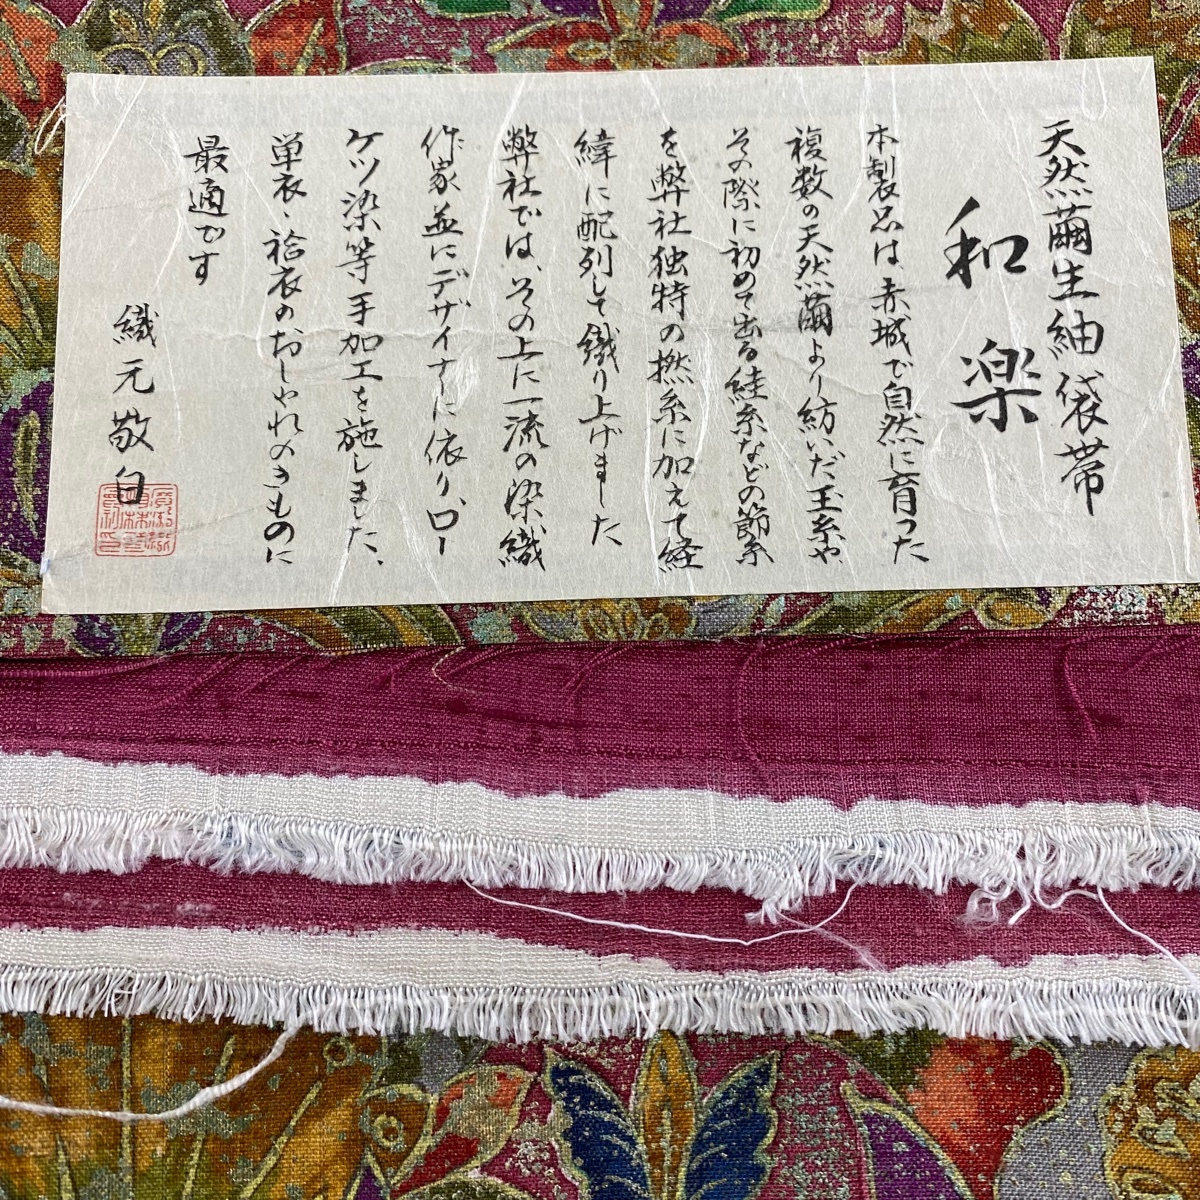 天然繭生紬袋帯
和楽
本製品は、赤城で自然に育った
複数の天然繭より紡いだ玉糸や
その際に初めて出る絓糸などの節糸
を弊社独特の撚糸に加えて経
緯に配列して織り上げました
弊社では、その上に一流の染織
作家並にデザイナーに依り、ロー
ケツ染等手加工を施しました、
単衣、袷衣のおしゃれのきものに
最適です
織元敬白